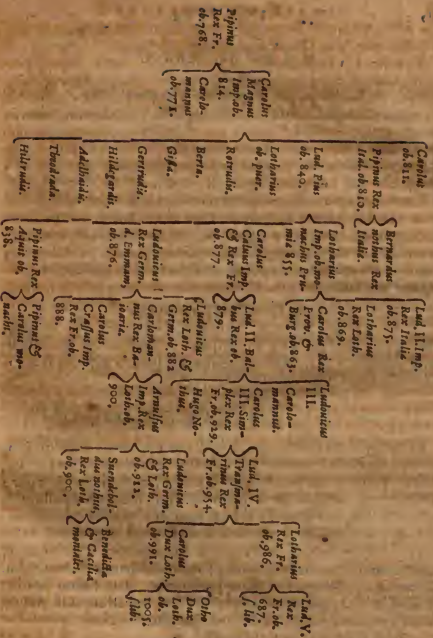 Pipinus
Rex Fr.
ob. 768.
Carolus
Magnus
Imp. ob.
814.
Carolo-
mannus
ob. 771.
Carolus
ob. 811.
Pipinus Rex
Ital. ob. 810.
Lud. Pius
ob. 840.
Lotharius
ob. puer.
Rotrudis.
Berta.
Gisla.
Gertrudis.
Hildegardis.
Adelhaidis.
Theodrada.
Hiltrudis.
Bernardus
nothus Rex
Italiæ.
Lotharius
Imp. ob. mo-
nachus Pru-
miæ 855.
Carolus
Calvus Imp.
& Rex Fr.
ob. 877.
Ludovicus
Rex Germ.
ob. 876.
Pipinus Rex
Aquit. ob.
838.
Lud. II. Imp.
Rex Italiæ
ob. 875.
Lotharius
Rex Loth.
ob. 869.
Carolus Rex
Prov. &
Burg. ob. 863.
Lud. II. Bal-
bus Rex ob.
879.
Ludovicus
Rex Loth. &
Germ. ob. 882
Carloman-
nus Rex Ba-
ioariæ.
Carolus
Crassus Imp.
Rex Fr. ob.
888.
Pipinus &
Carolus mo-
nachi.
Ludovicus
III.
Carolo-
mannus.
Carolus
III. Sim-
plex Rex
Fr. ob. 929.
Hugo No-
thus.
Arnulfus
Imp. Rex
Loth. ob.
900.
Lud. IV.
Transma-
rinus Rex
Fr. ob. 954.
Ludovicus
Rex Germ.
& Loth.
ob. 912.
Suendebol-
dus nothus,
Rex Loth.
ob. 900.
Lotharius
Rex Fr.
ob. 986.
Carolus
Dux Loth.
ob. 991.
Benedicta
& Cæcilia
moniales.
Lud. V.
Rex
Fr. ob.
687.
s. lib.
Otho
Dux
Loth.
ob.
1005.
s. lib.